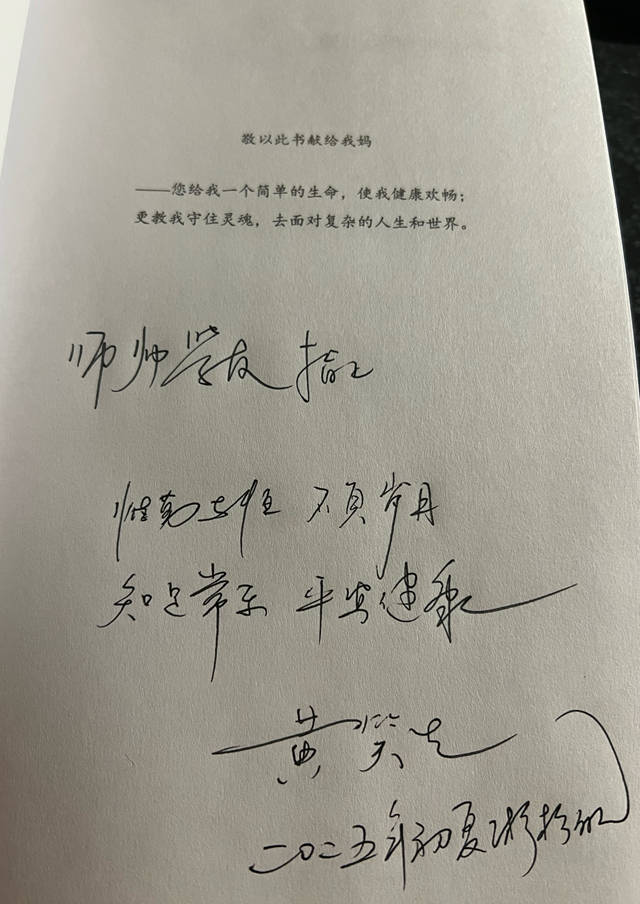 敬以此书献给我妈
——您给我一个简单的生命，使我健康欢畅；
更教我守住灵魂，去面对复杂的人生和世界。
师帅学友 指正
惟勤与恒 不负岁月
知足常乐 平安健康
黄笑
二〇二五年初夏